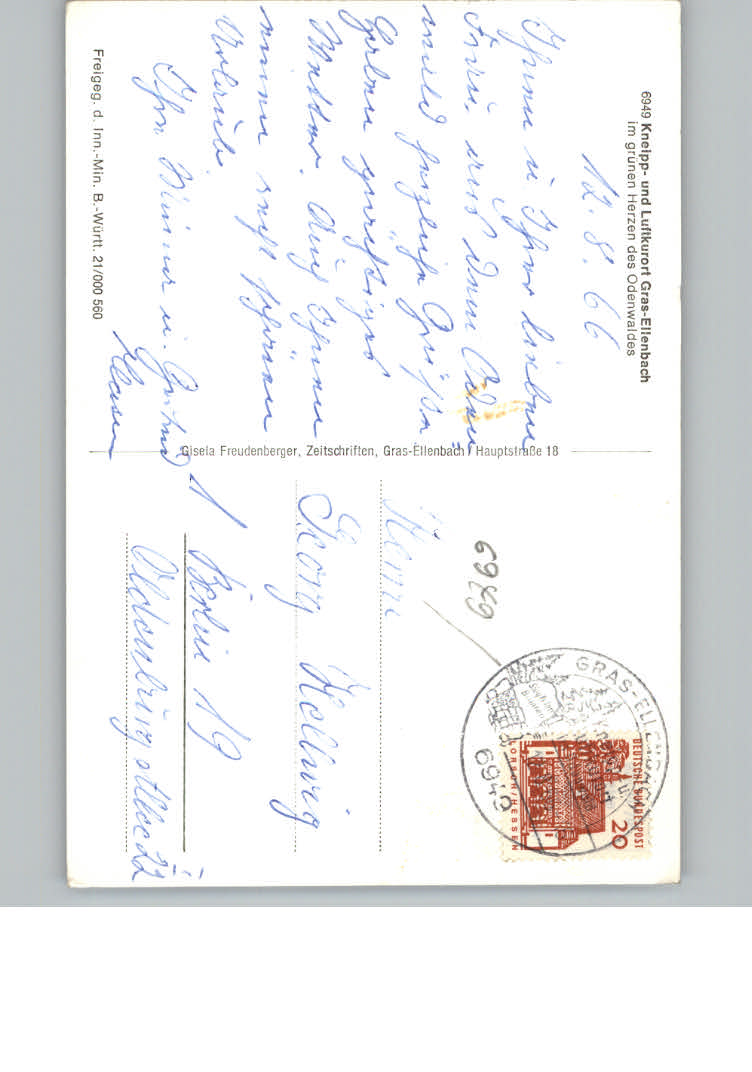 6949 Kneipp- und Luftkurort Gras-Ellenbach
im grünen Herzen des Odenwaldes
12. 8. 66
Ihnen u. Ihrer lieben
Frau, aus dem
und herzliche Grüße
Gerlen
Wetter. Auch Ihnen
einen recht schönen
Urlaub.
Ihr Werner u. Gertrud
Freigeg. d. Inn.-Min. B.-Württ. 21/000 560
Gisela Freudenberger, Zeitschriften, Gras-Ellenbach, Hauptstraße 18
6949
GRAS-ELLENBACH
6949
DEUTSCHE BUNDESPOST
20
LORSCH/HESSEN
Herrn
Georg Hellwig
1 Berlin 19